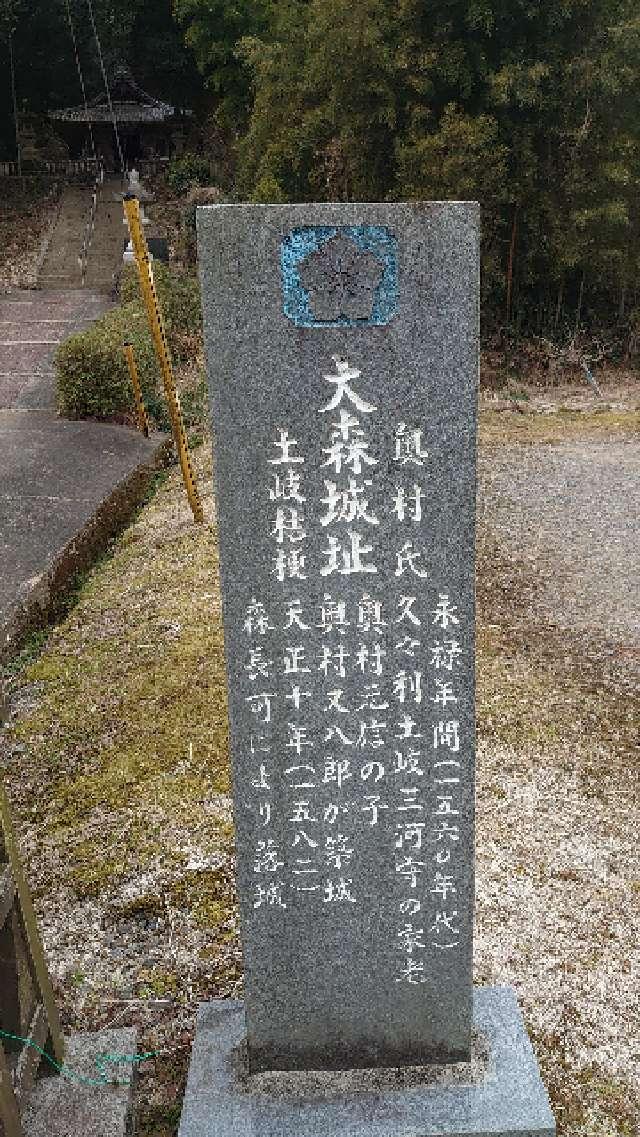 奥村氏
大森城址
土岐桔梗
永禄年間(一五六〇年代)
久々利土岐三河守の家老
奥村元信の子
奥村又八郎が築城
天正十年(一五八二)
森長可により落城